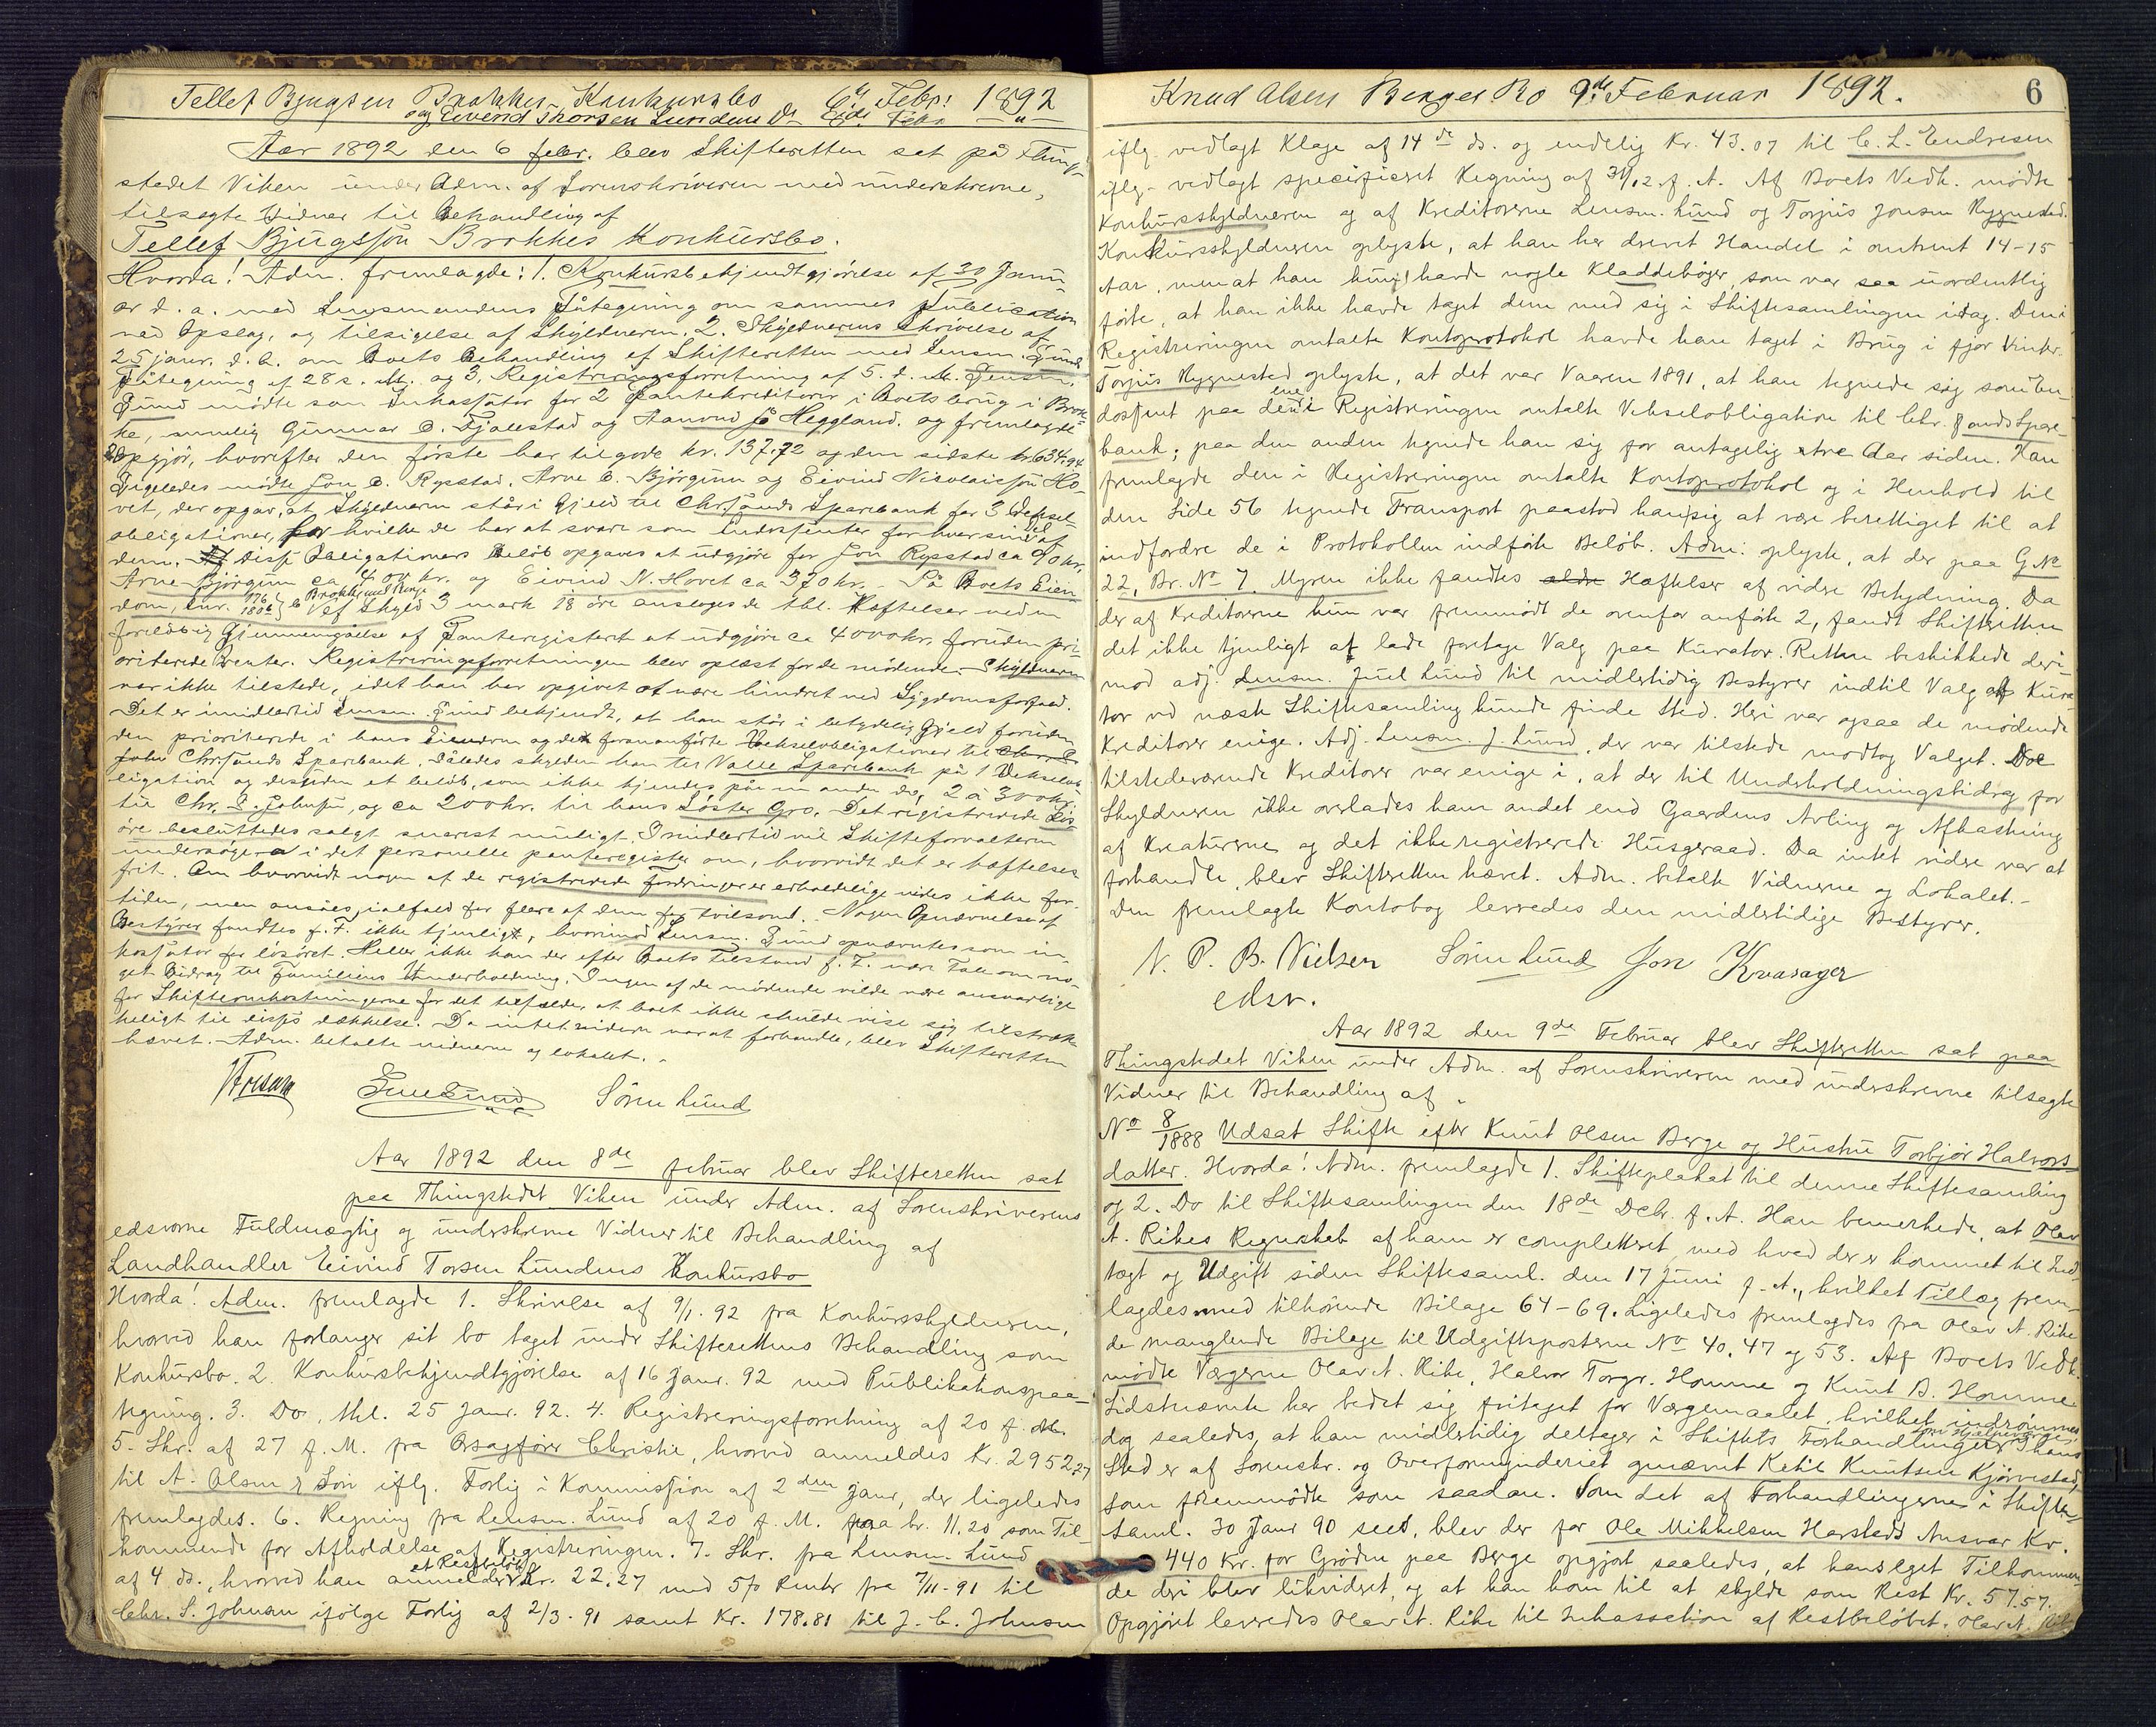 Tellef Bjugsen Brokkes Konkursbo 6te Febr. 1892
og Eivend Thorsen Lundens Do 8de Febr. "
Aar 1892 den 6 febr. blev Skifteretten sat på Thing-
stedet Viken under Adm. af Sorenskriveren med underskrevne,
tilsagte Vidner til Behandling af
Tellef Bjugssøn Brokkes Konkursbo.
Hvorda! Adm. fremlagde: 1. Konkursbekjendtgjørelse af 30 Janu-
ar d. a. med Lensmandens Påtegning om sammes Publication
ved Opslag, og tilsigelse af Skyldneren. 2. Skyldnerens Skrivelse af
25 janr. d. A. om Boets Behandling af Skifteretten med Lensm. Lunds
Påtegning af 28 s. M. og 3, Registreringsforretning af 5. d. M. Lensm.
Lund mødte som Inkassator for 2 Pantekreditorer i Boets brug i Brok-
ke, nemlig Gunnar O. Fjallestad og Aanond Heggland. og fremlagde
Opgjør, hvorefter den første har tilgode kr. 137.72 og den sidste kr. 634.94
Ligeledes mødte Jon O. Rysstad, Arne O. Bjørgum og Eivind Nicolaissøn Ho-
vet, der opgav, at Skyldneren står i Gjeld til Chrsands Sparebank for 3 Veksel-
obligationer, for hvilke de har at svare som Endossenter for hver sin af
dem. Disse Obligationers Beløb opgaves at udgjøre for Jon Rysstad ca 90 kr,
Arne Bjørgum ca 400 kr. og Eivind N. Hovet ca 370 kr. - På Boets Eien-
dom, Lnr. 176 180b Brokke med Berge af Skyld 3 mark 18 øre ansloges de thl. Hæftelser ved en
foreløbig Gjennemgåelse af Panteregisteret at udgjøre ca 4000 kr. foruden pri-
oriterede Renter. Registreringsforretningen blev oplæst for de mødende. Skyldneren
var ikke tilstede, idet han har opgivet at være hindret ved Sygdomsforfald.
Det er imidlertid Lensm. Lund bekjendt, at han står i betydelig Gjeld foruden
den prioriterede i hans Eiendom og de forananførte Vekselobligationer til
Chrsands Sparebank. Således skylder han til Valle Sparebank på 1 Vekselob-
ligation og desuden et beløb, som ikke kjendes på en anden do, 2 à 300 kr.
til Chr. S. Johnsen, og ca 200 kr. til hans Søster Gro. Det registrerede Løs-
øre besluttedes solgt snarest muligt. Imidlertid vil Skifteforvalteren
undersøge i det personelle panteregister om, hvorvidt det er hæftelses-
frit. Om hvorvidt nogen af de registrerede Fordringer er erholdelige vides ikke for-
tiden, men ansåes ialfald for flere af dem for tvilsomt. Nogen Opnævnelse af
Bestyrer fandtes f. T. ikke tjenligt, hvorimod Lensm. Lund opnævntes som in-
kassator for løsøret. Heller ikke kan der efter Boets Tilstand f. T. være Tale om no-
get Bidrag til Familiens Underholdning. Ingen af de mødende vilde være ansvarlige
for Skifteomkostningerne for det tilfælde, at boet ikke skulde vise sig tilstræk-
keligt til disses dækkelse. Da intet videre var at forhandle, blev Skifteretten
hævet. Adm. betalte vidnerne og lokalet.
Juel Lund Søren Lund
Aar 1892 den 8de februar blev Skifteretten sat
paa Thingstedet Viken under Adm. af Sorenskriverens
edsvorne Fuldmægtig og underskrevne Vidner til Behandling af
Landhandler Eivind Torsen Lundens Konkursbo
Hvorda! Adm. fremlagde 1. Skrivelse af 9/1. 92 fra Konkursskyldneren,
hvorved han forlanger sit bo taget under Skifterettens Behandling som
Konkursbo. 2. Konkursbekjendtgjørelse af 16 Janr. 92 med Publikationspaa-
tegning. 3. Do. thl. 25 Janr. 92. 4. Registreringsforretning af 20 f. M.
5. Skr. af 27 f. M. fra Orsagfører Christie, hvorved anmeldes Kr. 2952,27
til A. Olsen & Søn iflg. Forlig i Kommission af 2den Janr, der ligeledes
fremlagdes. 6. Regning fra Lensm. Lund af 20 f. M. paa kr. 11.20 som Til-
kommende for Afholdelse af Registreringen. 7. Skr. fra Lensm. Lund
af 4. ds., hvorved han anmelder et Restbeløb Kr. 22.27 med 5% Renter fra 7/11-91 til
Chr. S. Johnsen ifølge Forlig af 2/3. 91 samt Kr. 178.81 til J. C. Johnsen
Knud Olsen Berges Bo 9de Februar 1892. 6
iflg. vedlagt Klage af 14de ds. og endelig Kr. 43.07 til C. L. Endresen
iflg. vedlagt specificeret Regning af 31/12 f. A. Af Boets Vedk. mødte
Konkursskyldneren og af Kreditorerne Lensm. Lund og Torjus Jonsen Rygnestad.
Konkursskyldneren oplyste, at han har drevet Handel i omtrent 14-15
Aar, men at han kun havde nogle Kladdebøger, som var saa uordentlig
førte, at han ikke havde taget dem med sig i Skiftesamlingen idag. Den i
Registreringen omtalte Kontoprotokol havde han taget i Brug i fjor Vinter.
Torjus Rygnestad oplyste, at det var Vaaren 1891, at han tegnede sig som En-
dossent paa den ene i Registreringen omtalte Vekselobligation til Chr.sands Spare-
bank; paa den anden tegnede han sig for antagelig tre Aar siden. Han
fremlagde den i Registreringen omtalte Kontoprotokol og i Henhold til
den Side 56 tegnede Transport paastod han sig at være berettiget til at
indfordre de i Protokollen indførte Beløb. Adm. oplyste, at der paa G. No
22, Br. No 7 Myren ikke fandtes Hæftelser af videre Betydning. Da
der af Kreditorerne kun var fremmødt de ovenfor anførte 2, fandt Skifteretten
det ikke tjenligt at lade foretage Valg paa Kurator. Retten beskikkede deri-
mod adj. Lensm. Juel Lund til midlertidig Bestyrer indtil Valg af Kura-
tor ved næste Skiftesamling kunde finde Sted. Heri var ogsaa de mødende
Kreditorer enige. Adj. Lensm. J. Lund, der var tilstede modtog Valget. De
tilstedeværende Kreditorer var enige i, at der til Underholdningsbidrag for
Skyldneren ikke overlades ham andet end Gaardens Avling og Afkastning
af Kreaturerne og det ikke registrerede Husgeraad. Da intet videre var at
forhandle, blev Skifteretten hævet. Adm. betalte Vidnerne og Lokalet.-
Den fremlagte Kontobog leveredes den midlertidige Bestyrer.
N. P. B. Nielsen Søren Lund Jon Kvasager
edsv.
Aar 1892 den 9de Februar blev Skifteretten sat paa
Thingstedet Viken under Adm. af Sorenskriveren med underskrevne tilsagte
Vidner til Behandling af
No 8/1888 Udsat Skifte efter Knut Olsen Berge og Hustru Torbjør Halvors-
datter. Hvorda! Adm. fremlagde 1. Skifteplakat til denne Skiftesamling
og 2. Do til Skiftesamlingen den 18de Dcbr. f. A. Han bemerkede, at Olav
A. Rikes Regnskab af ham er completteret med hvad der er kommet til Ind-
tægt og Udgift siden Skiftesaml. den 17 Juni f. A., hvilket Tillæg frem-
lagdes med tilhørende Bilage 64-69. Ligeledes fremlagdes fra Olav A. Rike
de manglende Bilage til Udgiftsposterne No 40, 47 og 53. Af Boets Vedk.
mødte Værgerne Olav A. Rike, Halvor Torgr. Homme og Knut B. Homme.
Sidstnævnte har bedet sig fritaget for Værgemaalet, hvilket indrømmes
dog saaledes, at han midlertidig deltager i Skiftets Forhandlinger som Hjelpeværge. I hans
Sted er af Sorenskr. og Overformynderiet opnævnt Ketil Knutsen Kjørvestad,
som fremmødte som saadan. Som det af Forhandlingerne i Skifte-
saml. 30 Janr 90 sees, blev der for Ole Mikkelsen Harstads Ansvar Kr.
440 Kr. for Grøden paa Berge opgjort saaledes, at hans eget Tilkommen-
de deri blev likvideret, og at han kom til at skylde som Rest Kr. 57.57.
Opgjøret leveredes Olav A. Rike til Inkassation af Restbeløbet. Olav A. Rike